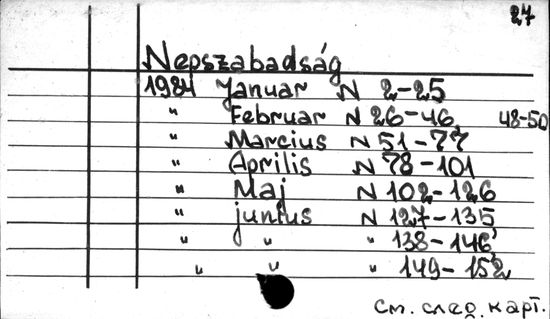 27
Nepszabadság
1984 Januar N 2-25
" Februar N 26-46, 48-50
" Marcius N 51-77
" Aprilis N 78-101
" Maj N 102-126
" junius N 127-135
" " " 138-146
" " " 149-152
См. след. карт.